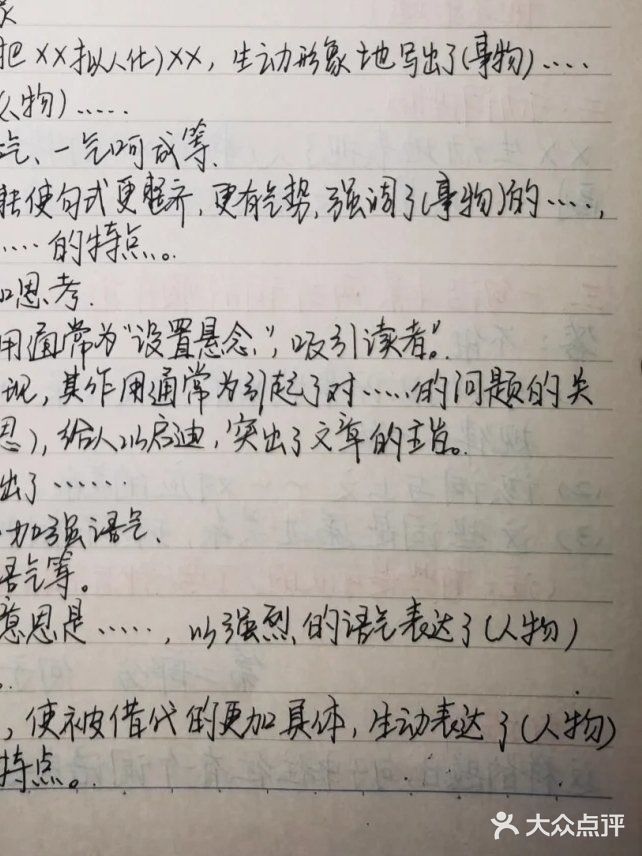 把XX拟人化)XX，生动形象地写出了(事物)……
人物)……
气、一气呵成等.
能使句式更整齐，更有气势，强调了(事物)的……，
……的特点。
思考.
用通常为"设置悬念"，吸引读者"。
现，其作用通常为引起了对……的问题的关
思)，给人以启迪，突出了文章的主旨。
出了……
加强语气.
语气等。
意思是……，以强烈的语气表达了(人物)
，使被借代的更加具体，生动表达了(人物)
特点。
大众点评